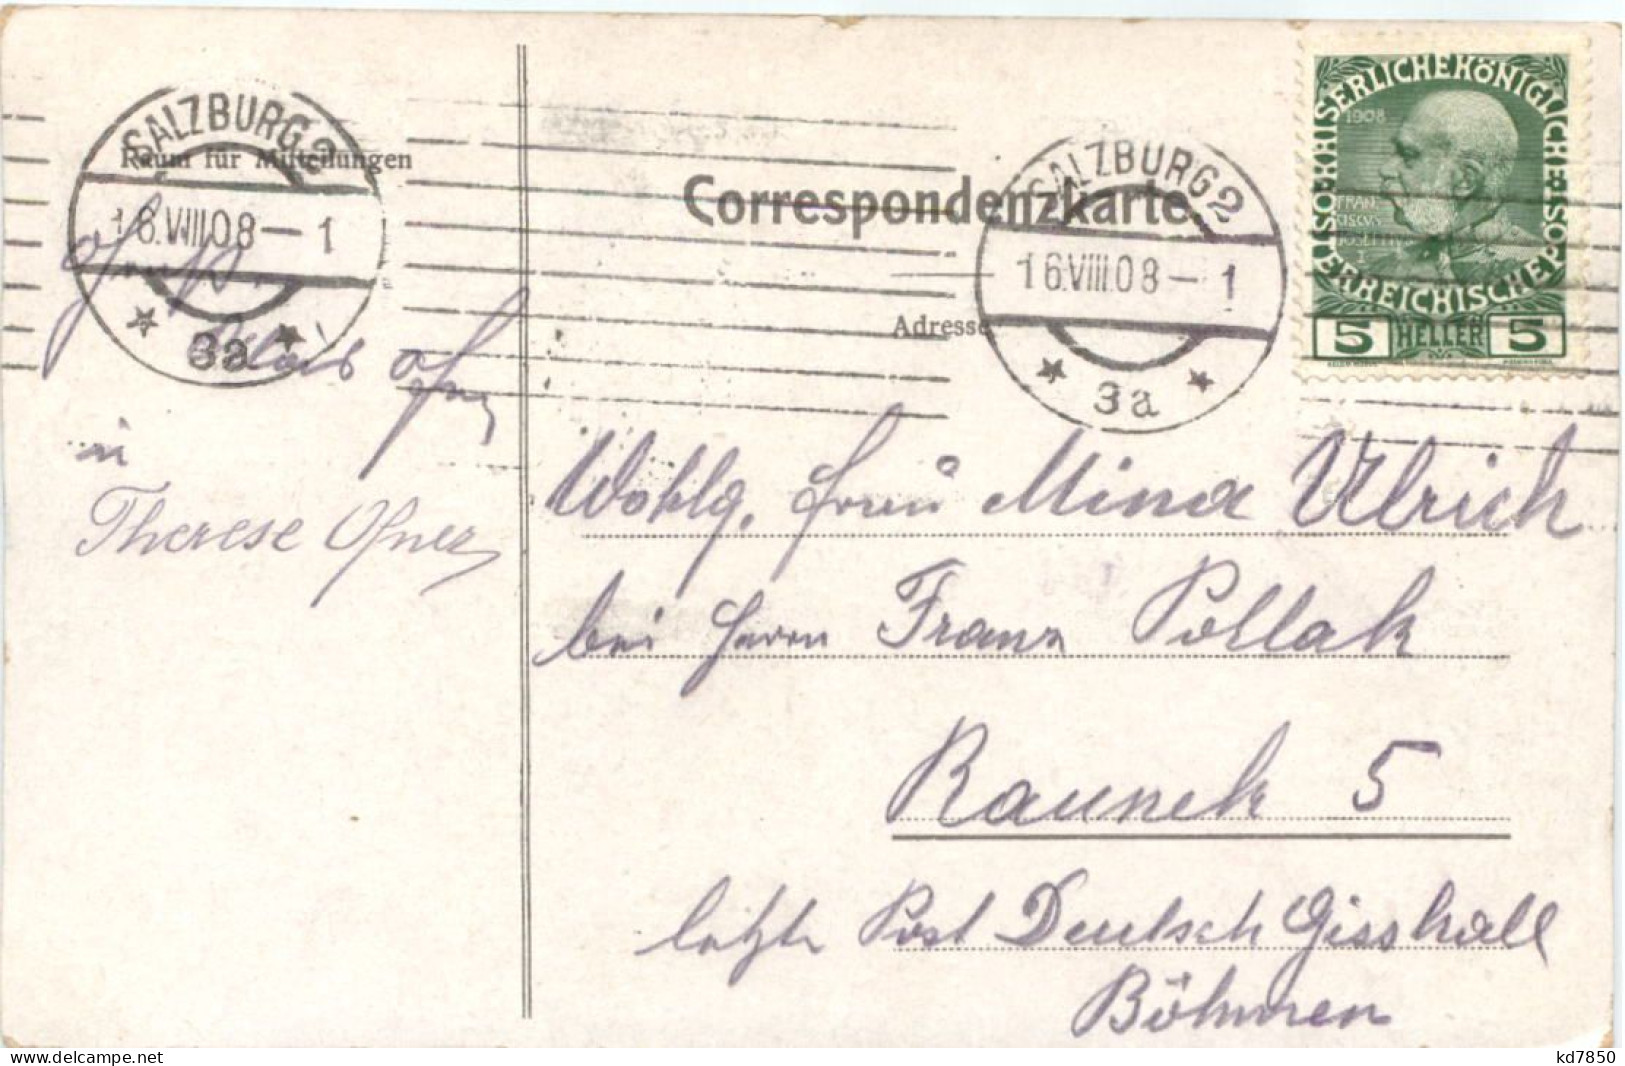 SALZBURG 2
16.VIII.08 – 1
* 3a *
Raum für Mitteilungen
in
Therese Ofner
Correspondenzkarte.
SALZBURG 2
16.VIII.08 – 1
* 3a *
Adresse
KAISERLICHE KÖNIGLICHE ÖSTERREICHISCHE POST
1908
FRAN
CISCVS
IOSEPH
I
5 HELLER 5
Wohlg. Frau Mina Ulrich
bei Herrn Franz Pollak
Raunek 5
letzte Post Deutsch Gisshall
Böhmen
delcampe.net
kd7850